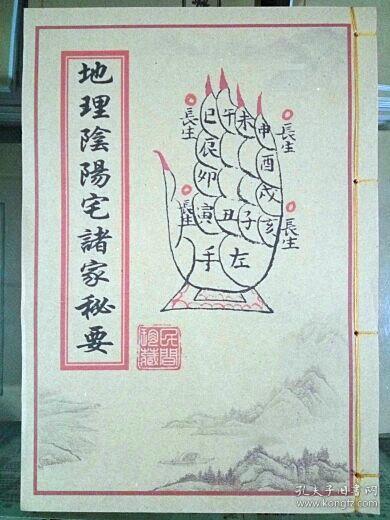 地理陰陽宅諸家秘要
巳午未申
辰酉
卯戌
寅丑子亥
長生
長生
長生
長生
左手
民間珍藏
孔夫子旧书网
www.kongfz.com